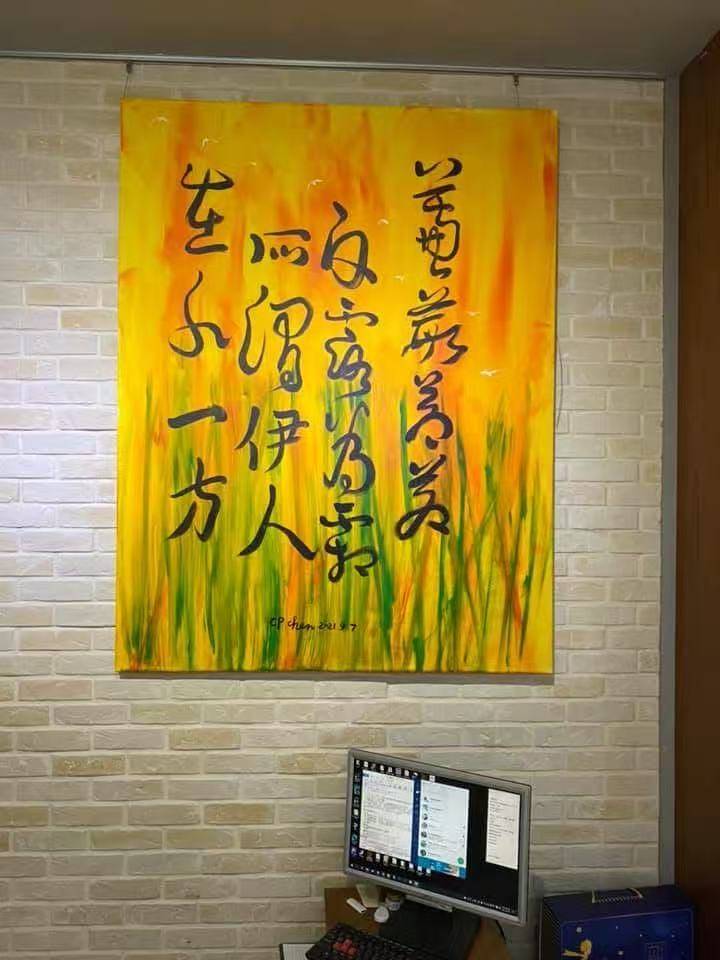 蒹葭蒼蒼
白露為霜
所謂伊人
在水一方
CP Chen 2021 9.7